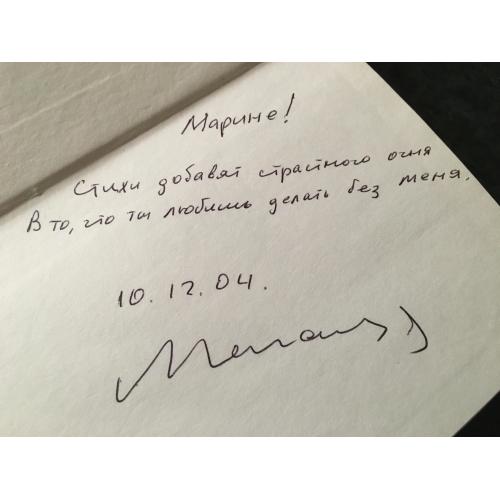 Марине!
Стихи добавят страстного огня
В то, что ты любишь делать без меня.
10.12.04.